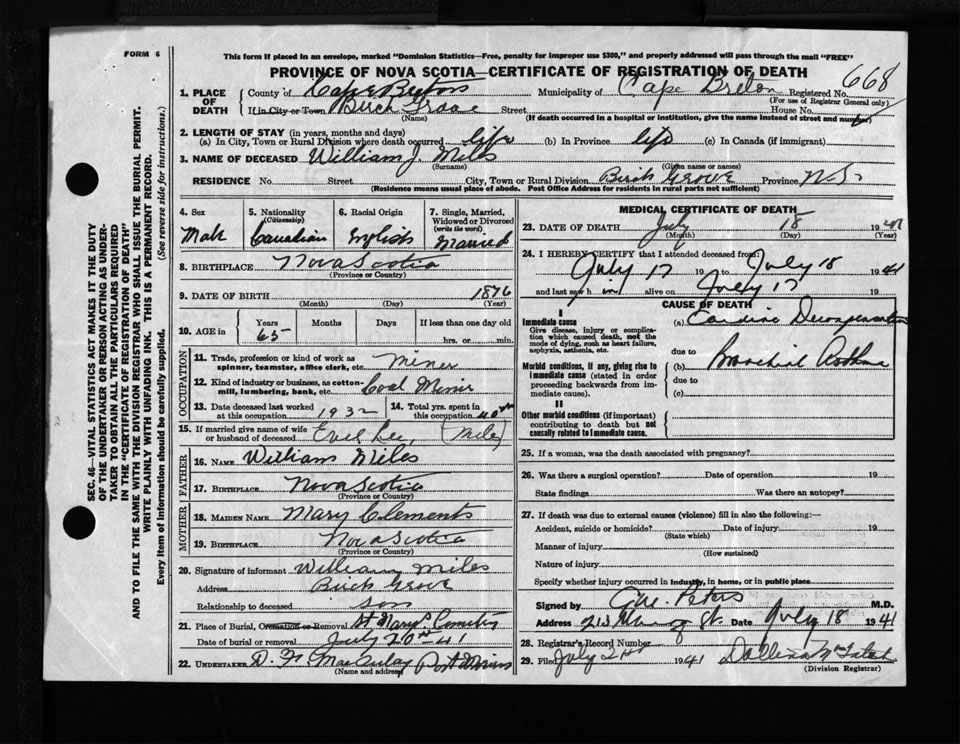 FORM 6
This form if placed in an envelope, marked "Dominion Statistics—Free, penalty for improper use $300," and properly addressed will pass through the mail "FREE"
PROVINCE OF NOVA SCOTIA—CERTIFICATE OF REGISTRATION OF DEATH
668
1. PLACE OF DEATH County of Cape Breton Municipality of Cape Breton Registered No.
(For use of Registrar General only)
If in City or Town Birch Grove Street House No.
(Name) (If death occurred in a hospital or institution, give the name instead of street and number)
2. LENGTH OF STAY (in years, months and days)
(a) In City, Town or Rural Division where death occurred life (b) In Province life (c) In Canada (if immigrant)
3. NAME OF DECEASED William J. Miles
(Surname) (Given name or names)
RESIDENCE No. Street City, Town or Rural Division Birch Grove Province N.S.
(Residence means usual place of abode. Post Office Address for residents in rural parts not sufficient)
SEC. 46—VITAL STATISTICS ACT MAKES IT THE DUTY
OF THE UNDERTAKER OR PERSON ACTING AS UNDER-
TAKER TO OBTAIN ALL THE PARTICULARS REQUIRED
IN THE "CERTIFICATE OF REGISTRATION OF DEATH"
AND TO FILE THE SAME WITH THE DIVISION REGISTRAR WHO SHALL ISSUE THE BURIAL PERMIT.
WRITE PLAINLY WITH UNFADING INK. THIS IS A PERMANENT RECORD.
Every item of Information should be carefully supplied. (See reverse side for instructions.)
4. Sex Male
5. Nationality (Citizenship) Canadian
6. Racial Origin English
7. Single, Married, Widowed or Divorced (write the word) Married
8. BIRTHPLACE Nova Scotia
(Province or Country)
9. DATE OF BIRTH 1876
(Month) (Day) (Year)
10. AGE in Years 65 Months Days If less than one day old
hrs. or min.
OCCUPATION
11. Trade, profession or kind of work as spinner, teamster, office clerk, etc. Miner
12. Kind of industry or business, as cotton-mill, lumbering, bank, etc. Coal Miner
13. Date deceased last worked at this occupation 1932
14. Total yrs. spent in this occupation 40
15. If married give name of wife or husband of deceased Lee, (Miles)
FATHER
16. NAME William Miles
17. BIRTHPLACE Nova Scotia
(Province or Country)
MOTHER
18. MAIDEN NAME Mary Clements
19. BIRTHPLACE Nova Scotia
(Province or Country)
20. Signature of informant William Miles
Address Birch Grove
Relationship to deceased son
21. Place of Burial, Cremation or Removal St Marys Cemetery
Date of burial or removal July 20th 41
22. UNDERTAKER D. Port Morien
(Name and address)
MEDICAL CERTIFICATE OF DEATH
23. DATE OF DEATH July 18 19
(Month) (Day) (Year)
24. I HEREBY CERTIFY that I attended deceased from:
July 17 to July 18 1941
and last saw h im alive on July 17 19
CAUSE OF DEATH
I
Immediate cause
Give disease, injury or complication which caused death, not the mode of dying, such as heart failure, asphyxia, asthenia, etc.
(a) Cardiac Decompensation
due to
Morbid conditions, if any, giving rise to immediate cause (stated in order proceeding backwards from immediate cause).
(b) Bronchial Asthma
due to
(c)
II
Other morbid conditions (if important) contributing to death but not causally related to immediate cause.
25. If a woman, was the death associated with pregnancy?
26. Was there a surgical operation? Date of operation 19
State findings Was there an autopsy?
27. If death was due to external causes (violence) fill in also the following:—
Accident, suicide or homicide? Date of injury 19
(State which)
Manner of injury
(How sustained)
Nature of injury
Specify whether injury occurred in industry, in home, or in public place
Signed by Peters M.D.
Address St. Date July 18 1941
28. Registrar's Record Number
29. Filed July 1941
(Division Registrar)